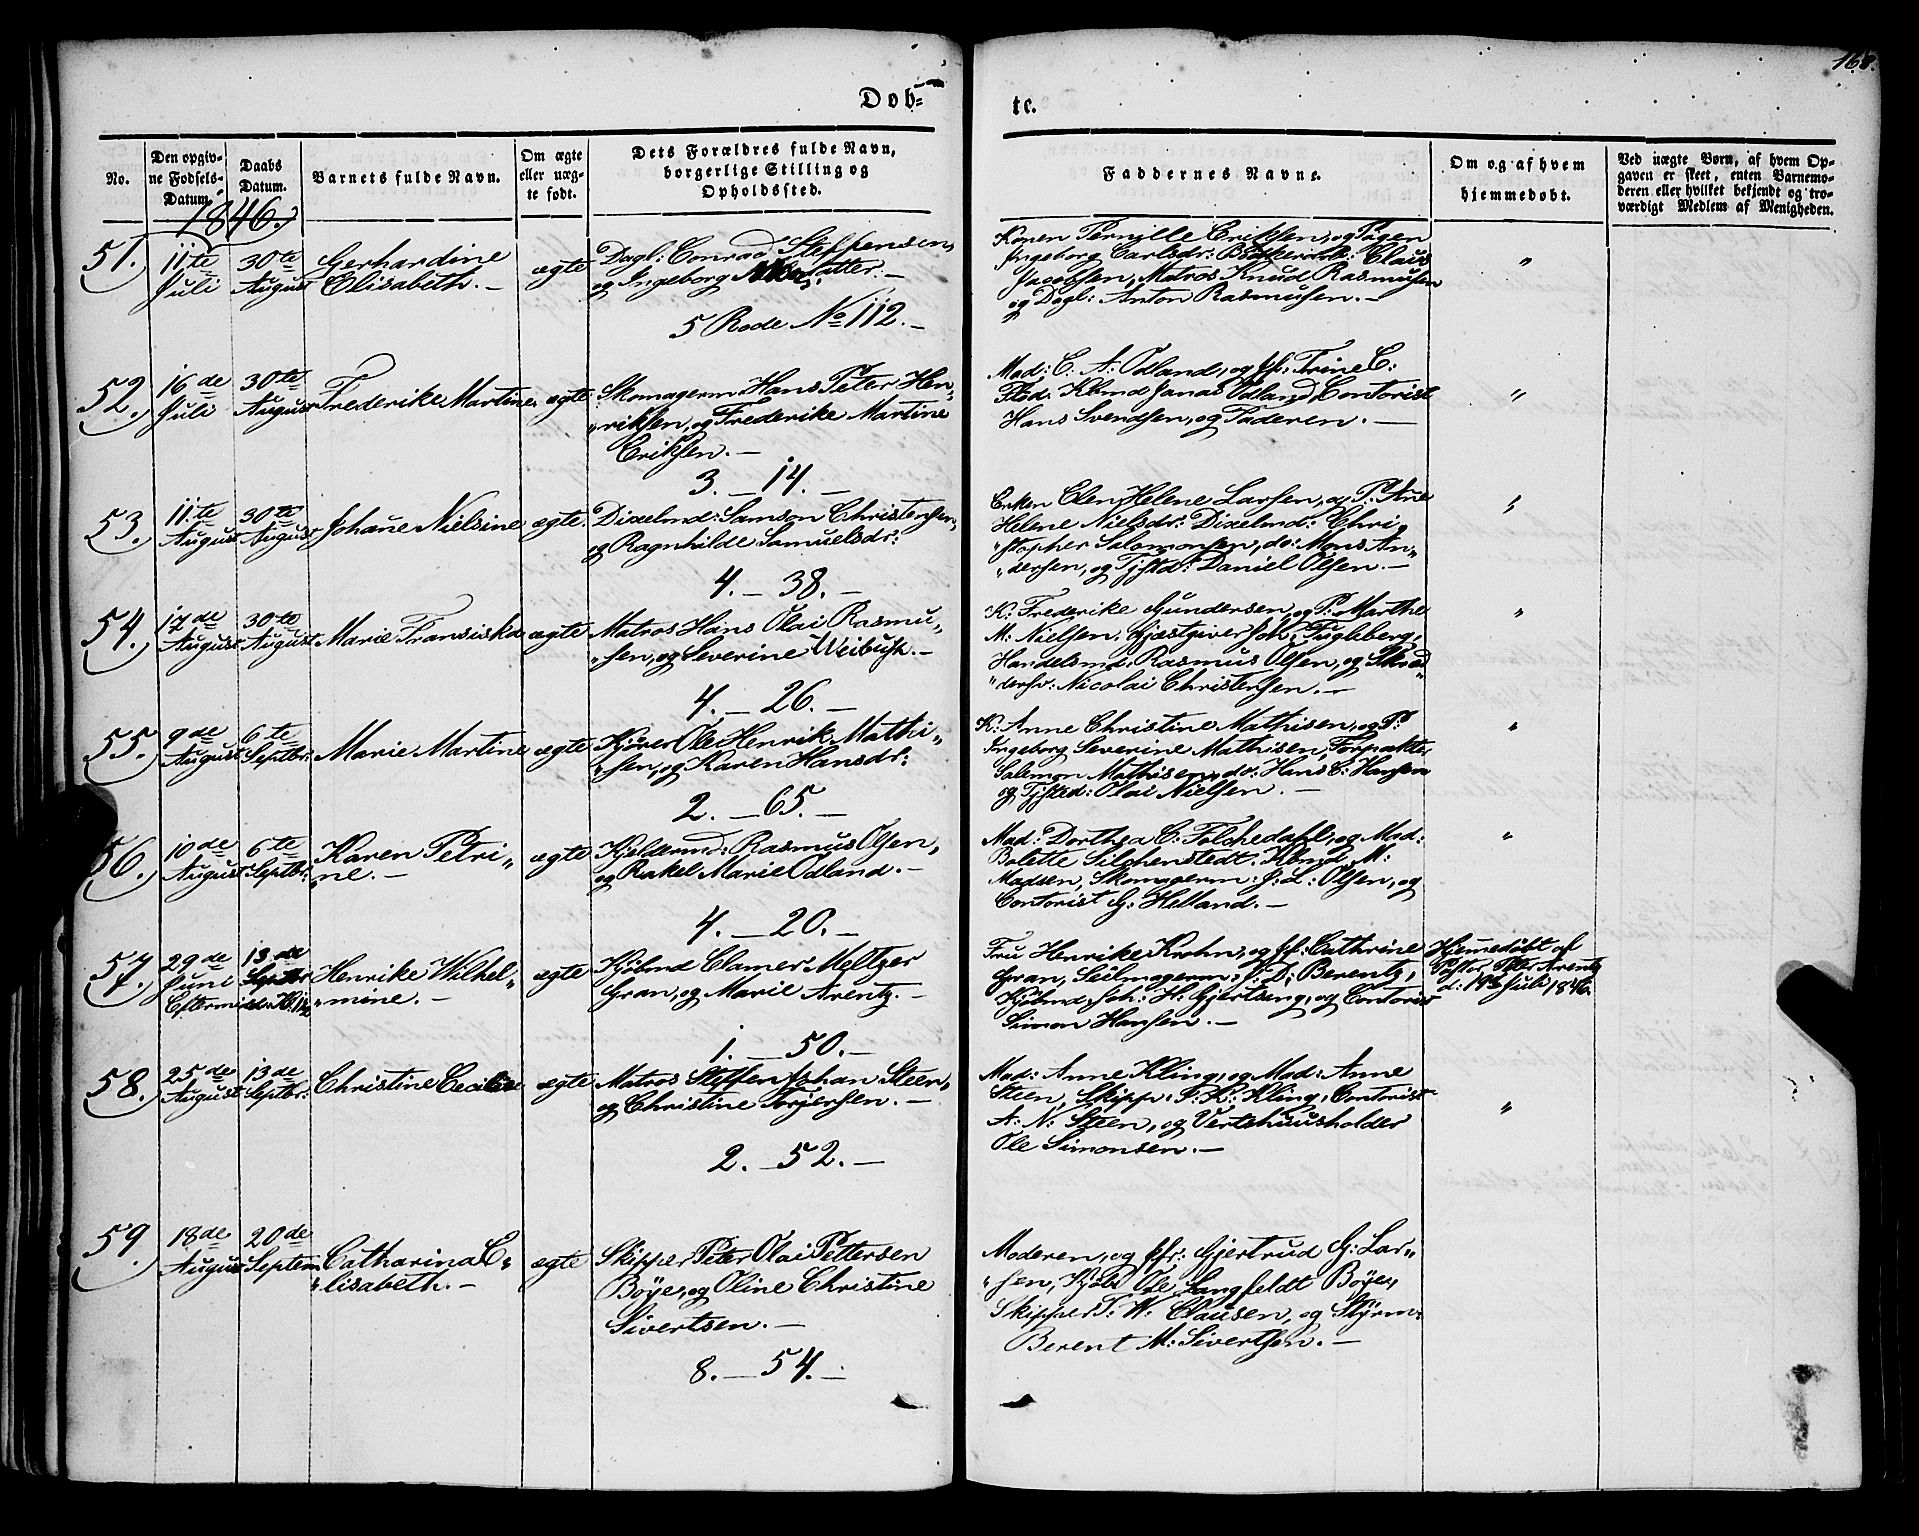 168.
Døb-
te.
No.
Den opgiv-
ne Fødsels-
Datum.
Daabs
Datum.
Barnets fulde Navn.
Om ægte
eller uæg-
te født.
Dets Forældres fulde Navn,
borgerlige Stilling og
Opholdssted.
Faddernes Navne.
Om og af hvem
hjemmedøbt.
Ved uægte Børn, af hvem Op-
gaven er skeet, enten Barnemo-
deren eller hvilket bekjendt og tro-
værdigt Medlem af Menigheden.
1846.
51.
11te
Juli
30te
August
Gerhardine
Elisabeth.
ægte
Dagl: Conrad Steffensen,
og Ingeborg
5 Rode No 112.
Konen Pernille Eriksen, og Pigen
Ingeborg Carlsdr: Claus
Jacobsen, Matros Knud Rasmusen
og Dagl: Anton Rasmusen.
"
52.
16de
Juli
30te
August
Frederike Martine
ægte
Skomagerm Hans Peter Hen-
"riksen, og Frederike Martine
Eriksen.
3. 14.
Mad: C. A: Odland, og Jfr: Trine C:
Flod. Kbmd Jonas Odland, Contorist
Hans Svendsen, og Faderen.
"
53.
11te
August
30te
August
Johañe Nielsine
ægte.
Dixelmd: Samson Christensen,
og Ragnhilde Samuelsdr:
4. 38.
Enken Elen Helene Larsen, og P: Ane
Helene Nielsdr: Dixelmd: Chri-
"stopher Salomonsen, do: Mons An-
"dersen, og Tjstd: Daniel Olsen.
"
54.
17de
August
30te
August
Marie Fransiska
ægte
Matros Hans Olai Rasmu-
"sen, og Severine Weibust.
4. 26.
K: Frederike Gundersen, og P: Marthe
M: Nielsen. Gjæstgiver Joh: Fugleberg,
Handelsmd: Rasmus Olsen, og Skræd
"dersv: Nicolai Christensen.
"
55.
9de
August
6te
Septbr:
Marie Martine
ægte
Kjører Ole Henrik Mathi-
"sen, og Karen Hansdr:
2. 65.
K: Anne Christine Mathisen, og P:
Ingeborg Severine Mathisen, Forpakter
Salemon Mathisen, do: Hans C: Hansen
og Tjsted: Olai Nielsen.
"
56.
10de
August
6te
Septbr:
Karen Petri-
"ne.
ægte
Kjeldermd: Rasmus Olsen,
og Rakel Marie Odland.
4. 20.
Mad: Dorthea C: Folchedahl, og Mad:
Bolette Silchenstedt. Kbmd M:
Madsen, Skomagerm: J: L: Olsen, og
Contorist G: Helland.
"
57.
29de
Juni
Eftermid
13de
Septbr
Henrike Wilhel-
"mine.
ægte
Kjøbmd Clamer Meltzer
Gran, og Marie Arentz.
1. 50.
Fru Henrike Krohn, og Jfr: Cathrine
Gran, Seilmagerm: J: D: Berentz,
Kjøbmd: Joh: H: Gjertsens, og Contorist
Simon Hansen.
Hjemedøbt af
Pastor Peter Arentz
d: 19 Juli 1846.
58.
25de
August
13de
Septbr:
Christine Cecilie
ægte
Matros Steffen Johan Steen,
og Christine Torjersen.
2. 52.
Mad: Anne Kling, og Mad: Anne
Steen, Skipp: P: R: Kling, Contorist
A: N: Steen, og Vertshuusholder
Ole Simonsen.
"
59.
18de
August
20de
Septem
Catharina E-
"lisabeth.
ægte
Skipper Peter Olai Pettersen
Bøye, og Oline Christine
Sivertsen.
8. 54.
Moderen, og Jfr: Gjertrud G: Lar-
"sen, Kjøbd Ole Langfeldt Bøye,
Skipper T: W: Clausen, og Styrm.
Berent M: Sivertsen.